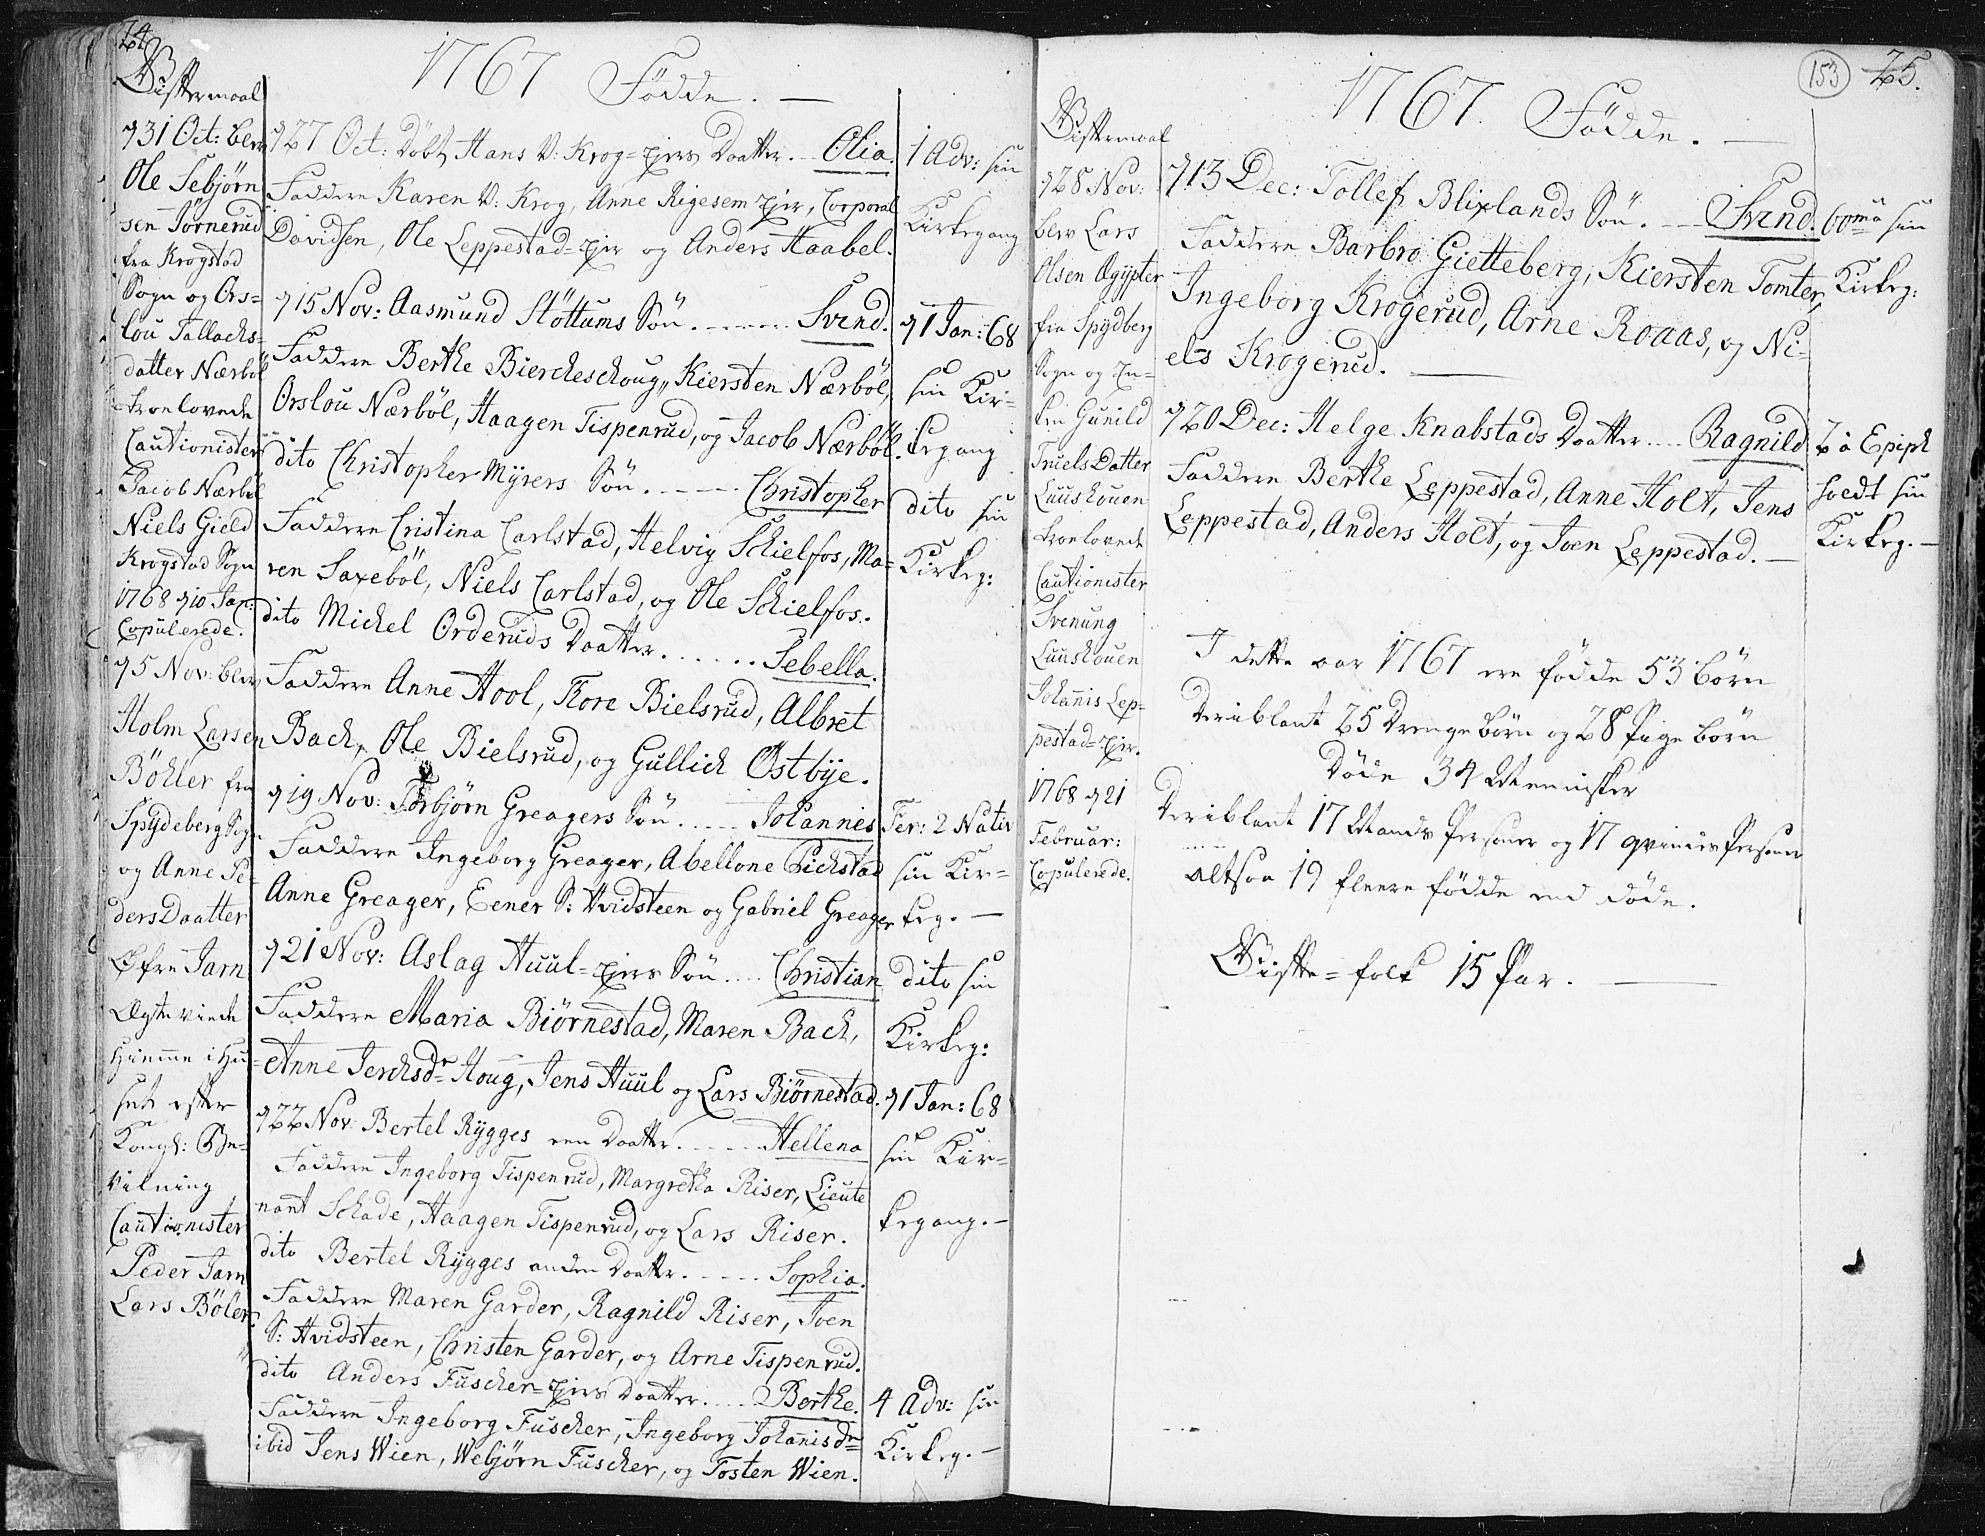 24
1767 Födde. —
Gifftermaal
d 31 Oct: blev
Ole Tebjörn
sen Törnerud
fra Krogstad
Sogn og Ors=
lou Tallachs=
datter Nærböl
troelovede
Cautionister
Jacob Nærböl
Niels Gield
Krogstad Sogn
1768 d 10 Jan:
Copulerede.
d 5 Nov: blev
Holm Larsen
Böhler fra
Spydeberg Sogn
og Anne Pe-
ders Daatter
Øfre Jarn
Ægteviede
hiemme i Hu-
set efter
Kongl: Be-
vilning
Cautionister
Peder Jarn
Lars Böler
d 27 Oct: Döbt Hans V: Krog=ejers Daatter. — Olia.
Faddere Karen V: Krog, Anne Rigesem ejer, Corporal
Davidsen, Ole Leppestad=ejer og Anders Haabel.
d 15 Nov: Aasmund Stöttums Sön. — Svend.
Faddere Berthe Biercheschoug, Kiersten Nærböl,
Orslou Nærböl, Haagen Tispenrud, og Jacob Nærböl.
dito Christopher Myrers Sön. — Christopher
Faddere Cristina Carlstad, Helvig Schielfos, Ma=
ren Saxeböl, Niels Carlstad, og Ole Schielfos.
dito Michel Orderuds Daatter. . . . . . Sebella.
Faddere Anne Hool, Kore Bielsrud, Albret
Bach, Ole Bielsrud, og Gullich Ostbye.
d 19 Nov: Torbjörn Greagers Sön. . . . . Johannes
Faddere Ingeborg Greager, Abellone Eichstad
Anne Greager, Eener S: Hvidsteen og Gabriel Greager
d 21 Nov: Aslag Huul=ejers Sön. . . . Christian
Faddere Maria Biörnestad, Maren Bach,
Anne Jerchsdr Houg, Jens Huul og Lars Biörnestad.
d 22 Nov: Bertel Rygges een Daatter. . . . . Hellena
Faddere Ingeborg Tispenrud, Margretha Riser, Lieute
nant Schade, Haagen Tispenrud, og Lars Riser.
dito Bertel Rygges anden Daatter. . . . . Sophia.
Faddere Maren Garder, Ragnild Riser, Joen
S: Hvidsteen, Christen Garder, og Arne Tispenrud.
dito Anders Fuscher=ejers Daatter. . . . Berthe.
Faddere Ingeborg Fuscher, Ingeborg Johanisdr
ibid Jens Wien, Webjörn Fuscher, og Tosten Wien.
1 Adv: sin
Kirkegang
d 1 Jan: 68
sin Kir=
kegang
dito sin
Kirkeg:
Fer: 2 Nativ
sin Kir=
keg. —
dito sin
Kirkeg:
d 1 Jan: 68
sin Kir=
kegang. —
4 Adv: sin
Kirkeg. —
153
25.
1767. Födde. —
Gifftermaal
d 28 Nov:
blev Lars
Olsen Ægypter
fra Spydberg
Sogn og En=
ken Gunild
Truels Datter
Luuskouen
troelovede
Cautionister
Svenung
Luuskouen
Johanis Lep=
pestad=ejer.
1768 d 21
Februar:
Copulerede.
d 13 Dec: Tollef Blixlands Sön. — Svend.
Faddere Barbro Gietteberg, Kiersten Tomter,
Ingeborg Krogerud, Arne Roaas, og Ni=
els Krogerud. —
d 20 Dec: Helge Knabstads Daatter. . . . Ragnild
Faddere Berthe Leppestad, Anne Holt, Jens
Leppestad, Anders Holt, og Joen Leppestad. —
60ma sin
Kirkeg:
2 a Epiph
holdt sin
Kirkeg. —
I dette aar 1767 ere födde 53 börn
Deriblant 25 Drengebörn og 28 Pigebörn
Döde 34 Mennisker
Deriblant 17 Mands Personer og 17 qvindes Personer
altsaa 19 fleere födde end döde.
Gifte=folk 15 Par. —